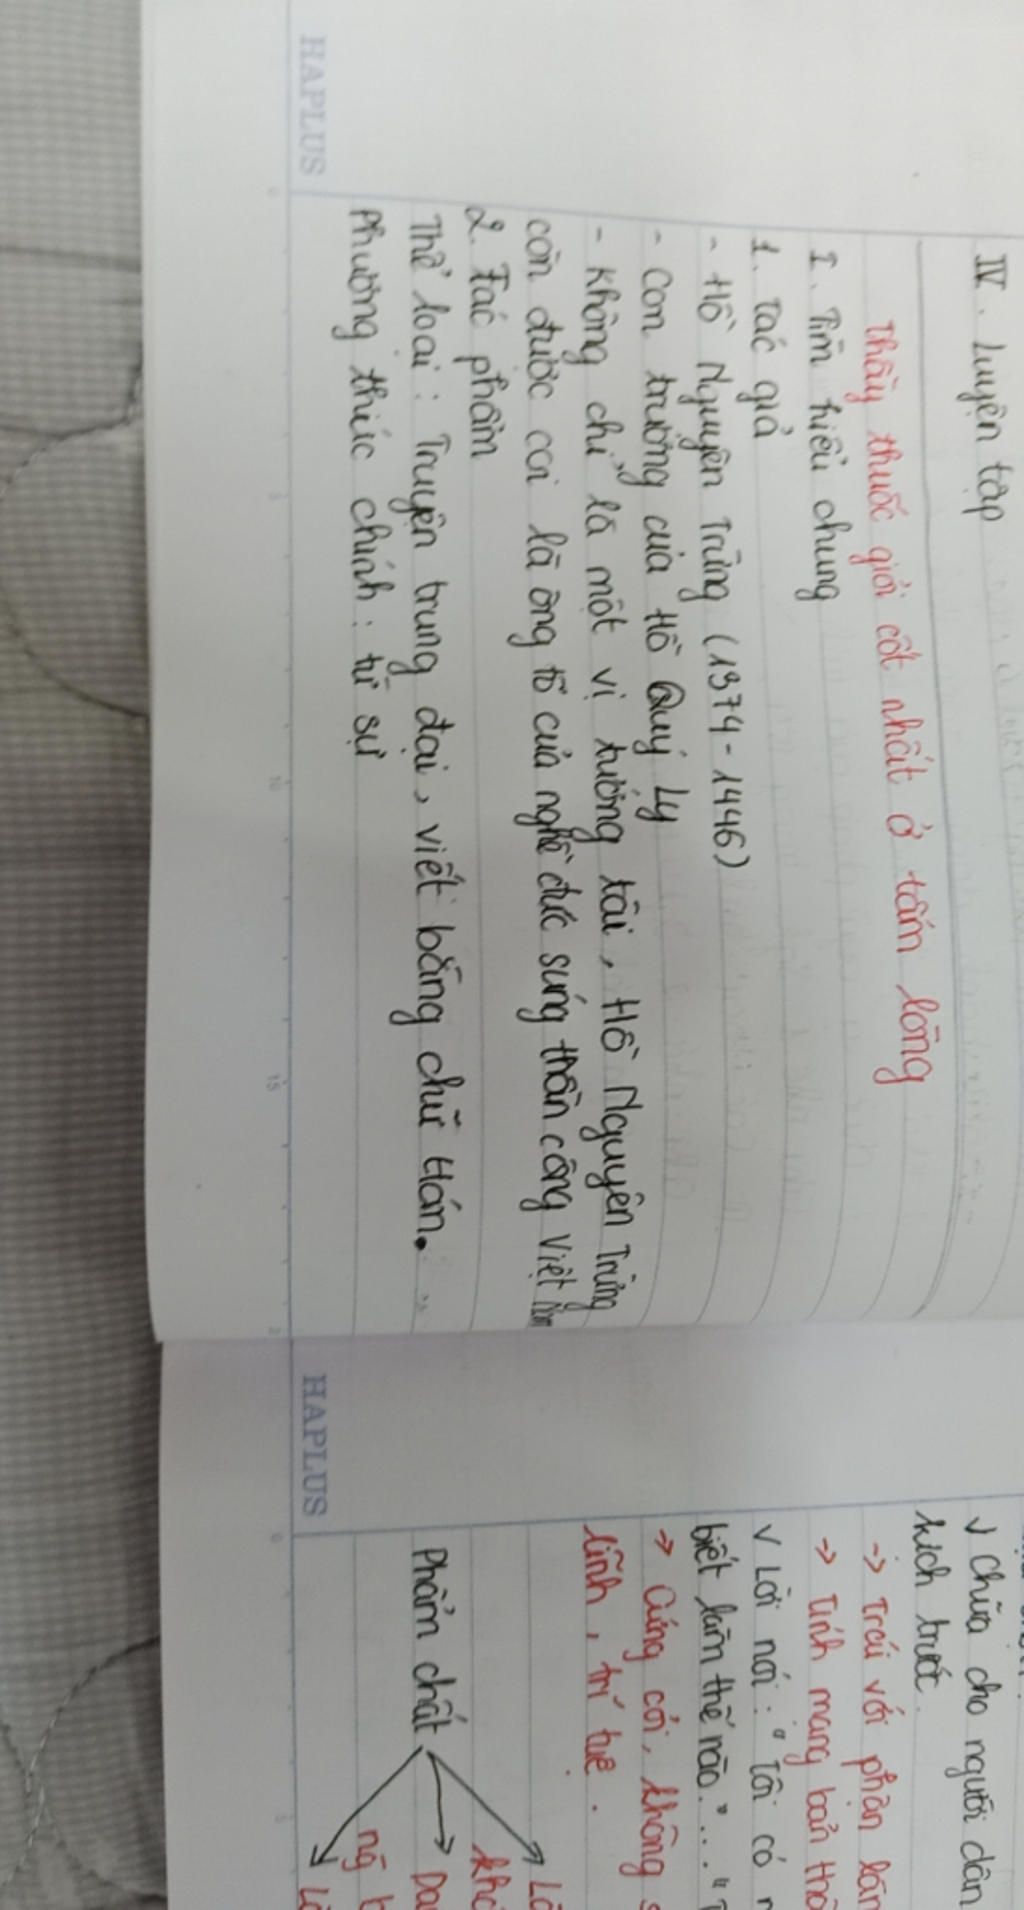 IV. Luyện tập
Thầy thuốc giỏi cốt nhất ở tấm lòng
I. Tìm hiểu chung
1. Tác giả
- Hồ Nguyên Trừng (1374-1446)
- Con trưởng của Hồ Quý Ly
- Không chỉ là một vị tướng tài, Hồ Nguyên Trừng
còn được coi là ông tổ của nghề đúc súng thần công Việt Nam
2. Tác phẩm
Thể loại: Truyện trung đại, viết bằng chữ Hán.
Phương thức chính: tự sự
HAPLUS
√ Chữa cho người dân
kịch trước.
-> Trái với phận
-> Tính mạng bản
√ Lời nói: "Tôi có
biết làm thế nào."... "
-> Cứng cỏi, không
lĩnh, trí tuệ.
Phẩm chất
HAPLUS